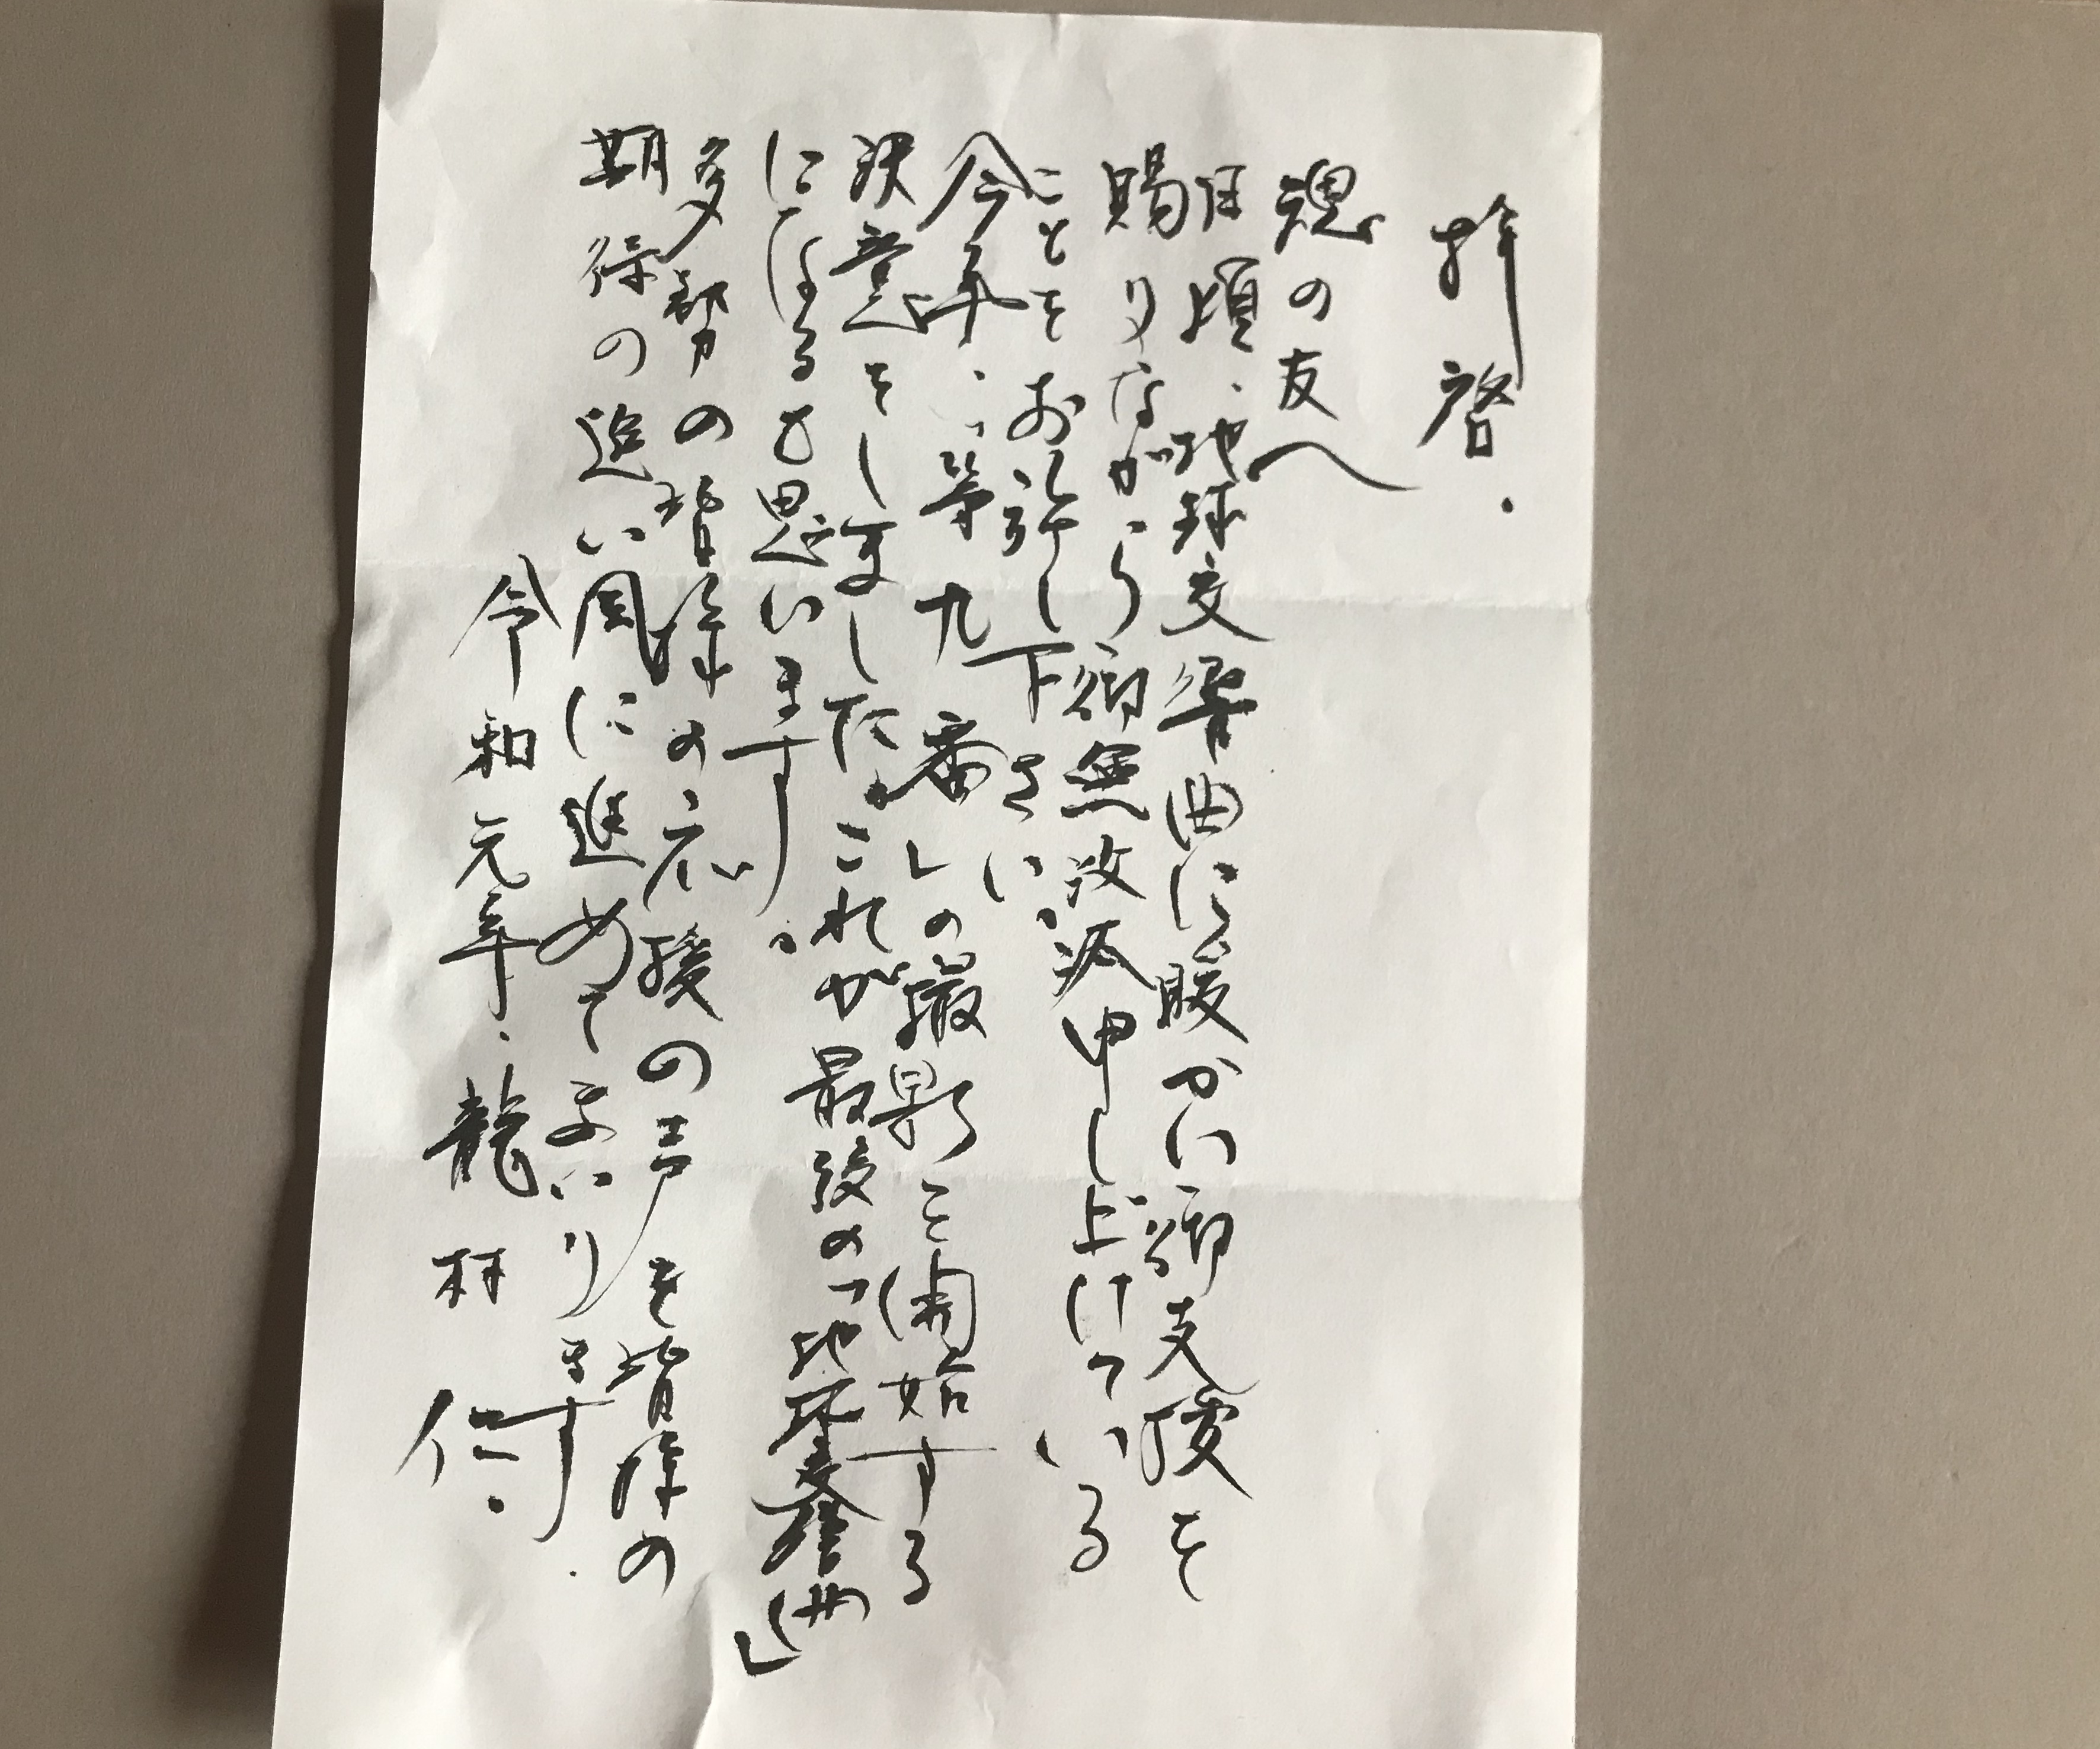 拝啓.
魂の友へ
日頃、地球交響曲に暖かい御支援を
賜りながら御無沙汰申し上げている
ことをお許し下さい。
今年、「第九番」の撮影を開始する
決意をしました。これが最後の「地球交響曲」
になると思います。
多勢の皆様の応援の声を皆様の
期待の追い風に進めてまいります.
令和元年.龍村仁.